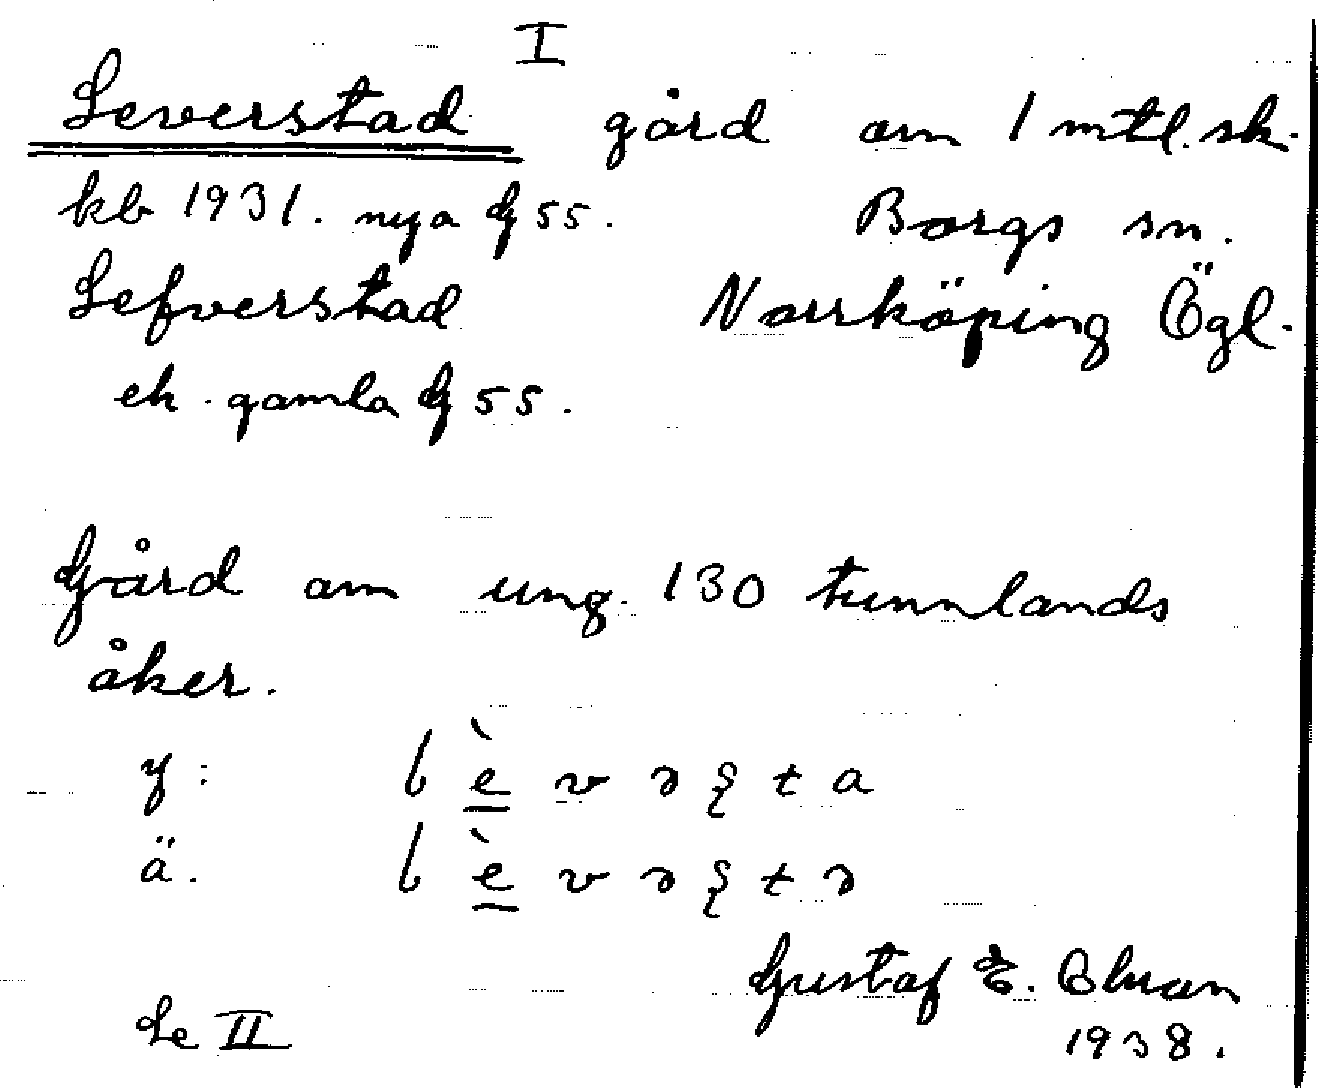 I
Leverstad gård om 1 mtl. sk.
kb 1931. nya G 55. Borgs sn.
Lefverstad Norrköping Ögl.
ek. gamla G 55.
Gård om ung. 130 tunnlands
åker.
y: lèvəʂta
ä. lèvəʂtə
Gustaf E.
1938.
Se II